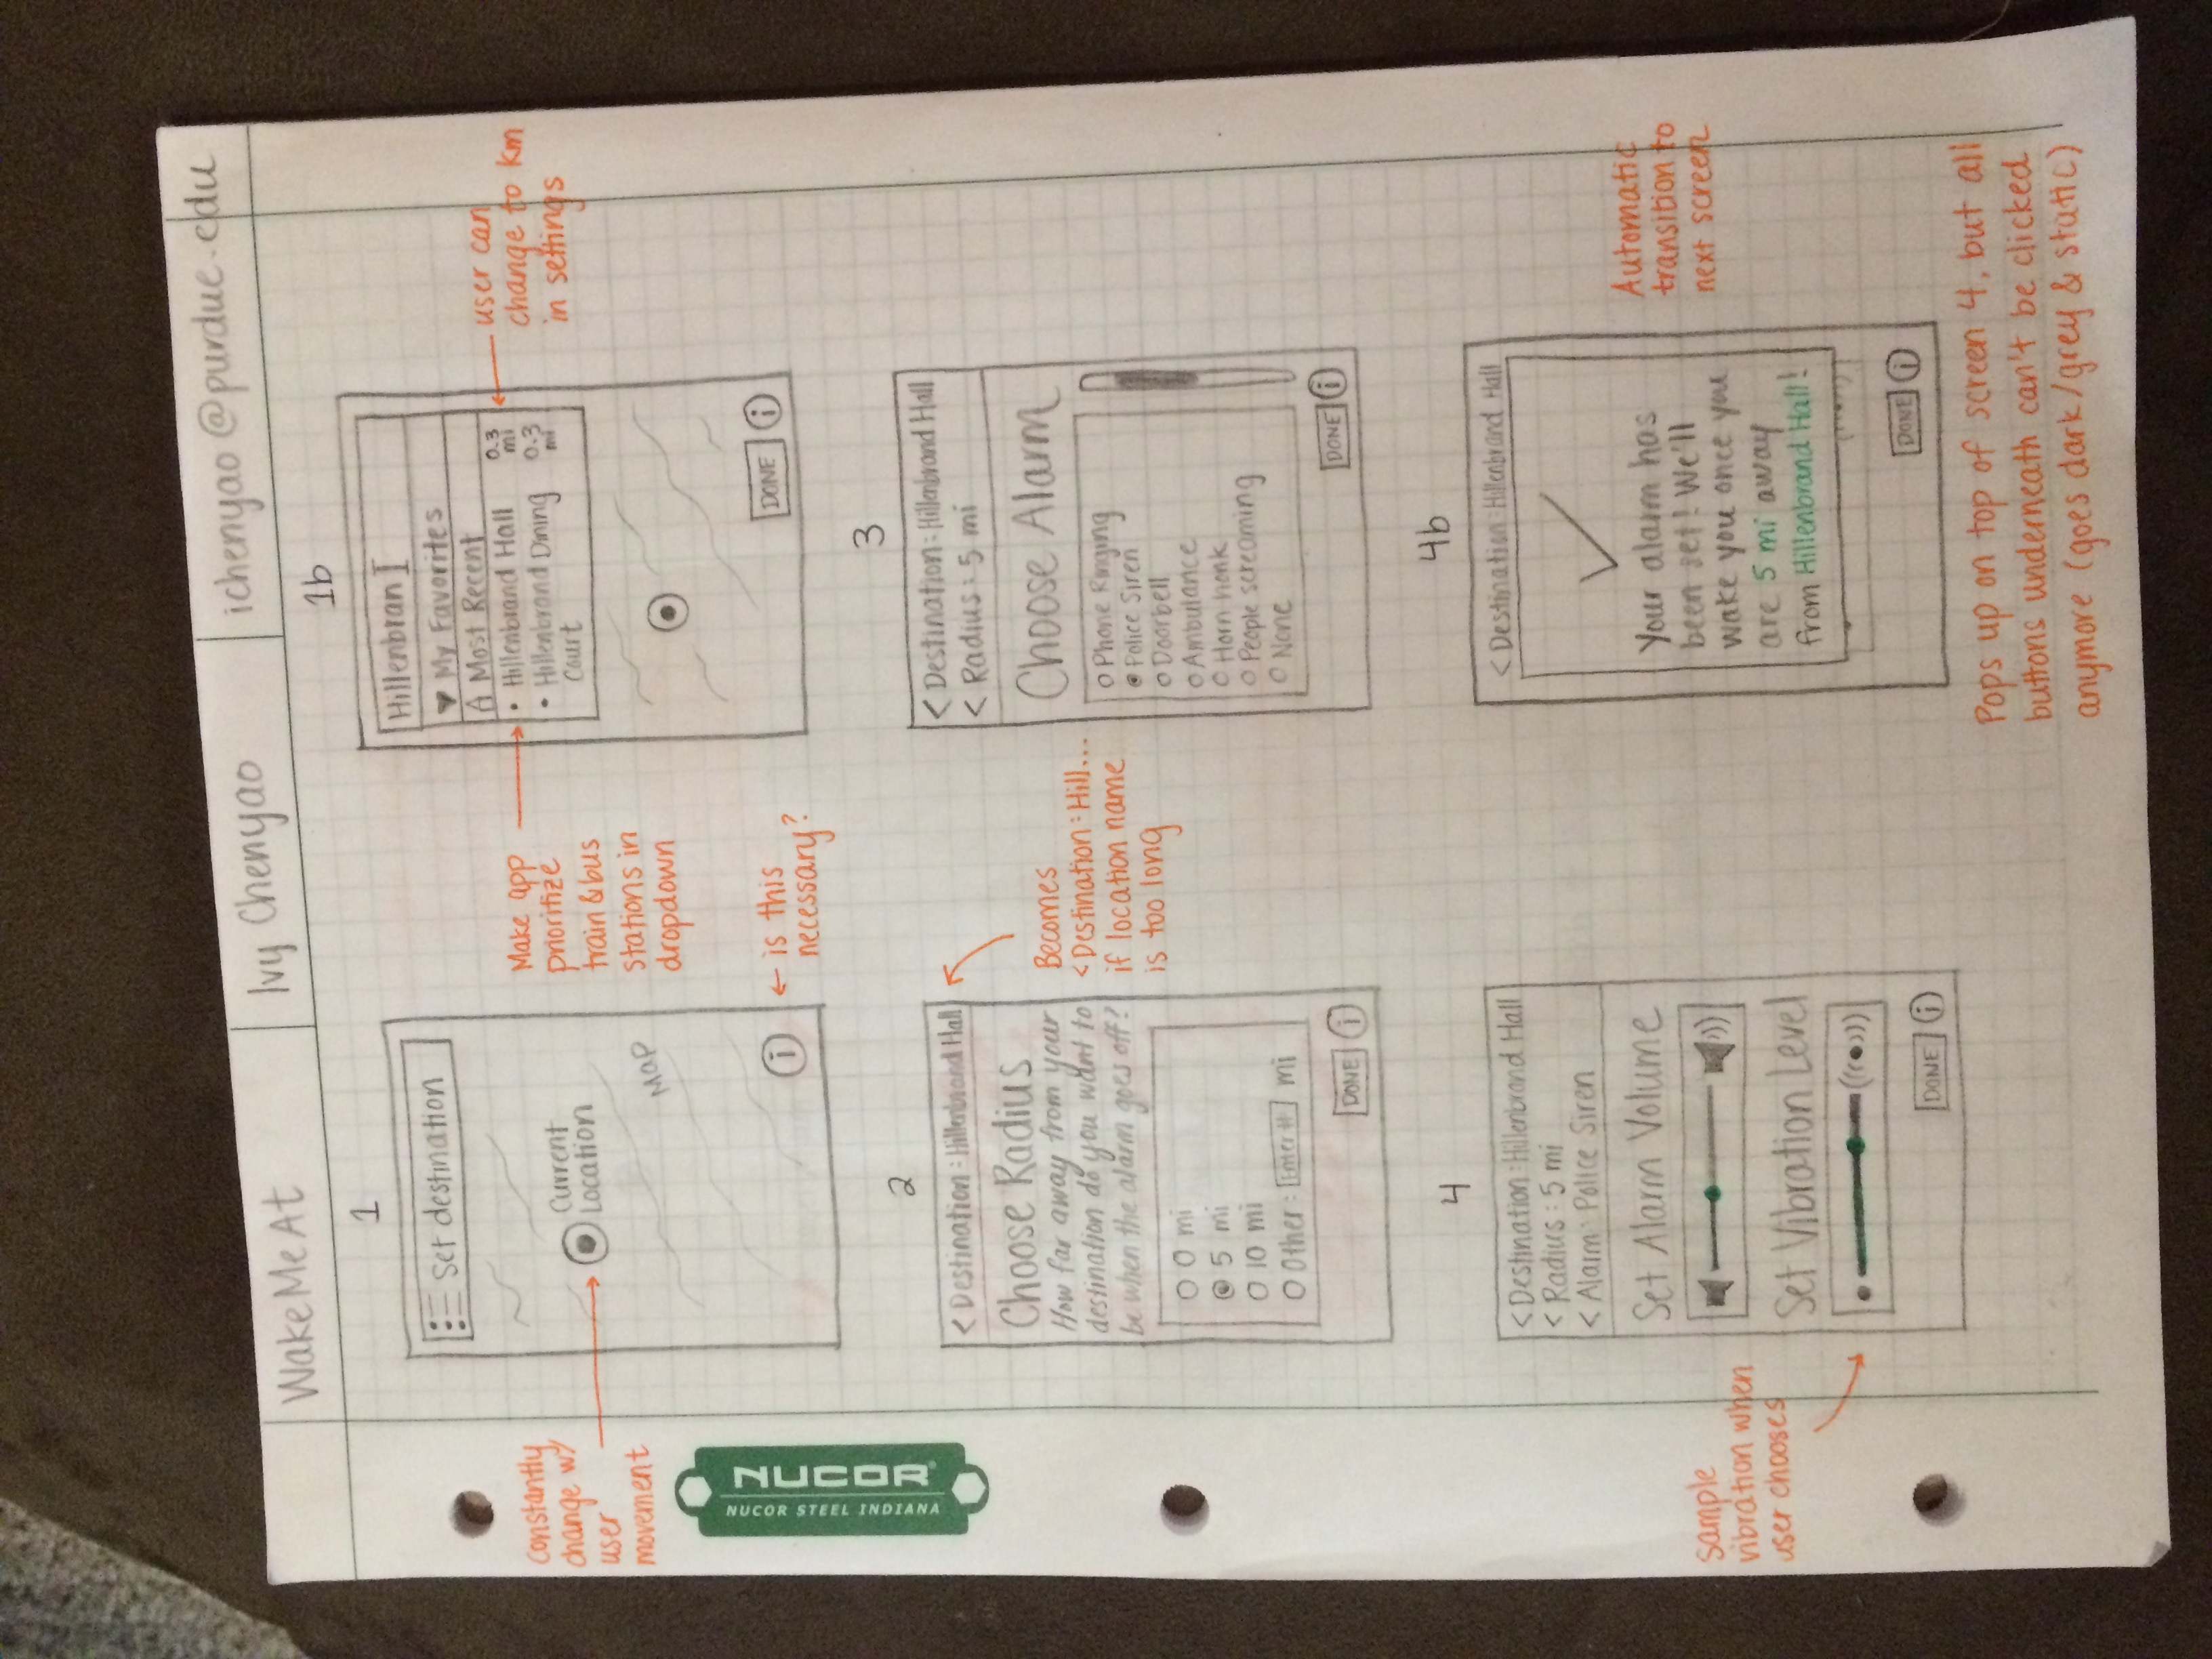 WakeMeAt
Ivy Chenyao
ichenyao@purdue.edu
1
Set destination
Current
Location
Map
i
constantly
change w/
user
movement
is this
necessary?
1b
Hillenbran
My Favorites
Most Recent
• Hillenbrand Hall 0.3 mi
• Hillenbrand Dining 0.3 mi
Court
DONE i
Make app
prioritize
train & bus
stations in
dropdown
user can
change to km
in settings
NUCOR®
NUCOR STEEL INDIANA
2
< Destination: Hillenbrand Hall
Choose Radius
How far away from your
destination do you want to
be when the alarm goes off?
0 mi
5 mi
10 mi
Other: Enter # mi
DONE i
Becomes
< Destination: Hill...
if location name
is too long
3
< Destination: Hillenbrand Hall
< Radius: 5 mi
Choose Alarm
Phone Ringing
Police Siren
Doorbell
Ambulance
Horn honk
People screaming
None
DONE i
4
< Destination: Hillenbrand Hall
< Radius: 5 mi
< Alarm: Police Siren
Set Alarm Volume
Set Vibration Level
DONE i
sample
vibration when
user chooses
4b
< Destination: Hillenbrand Hall
Your alarm has
been set! We'll
wake you once you
are 5 mi away
from Hillenbrand Hall!
DONE i
Automatic
transition to
next screen
Pops up on top of screen 4, but all
buttons underneath can't be clicked
anymore (goes dark/grey & static)